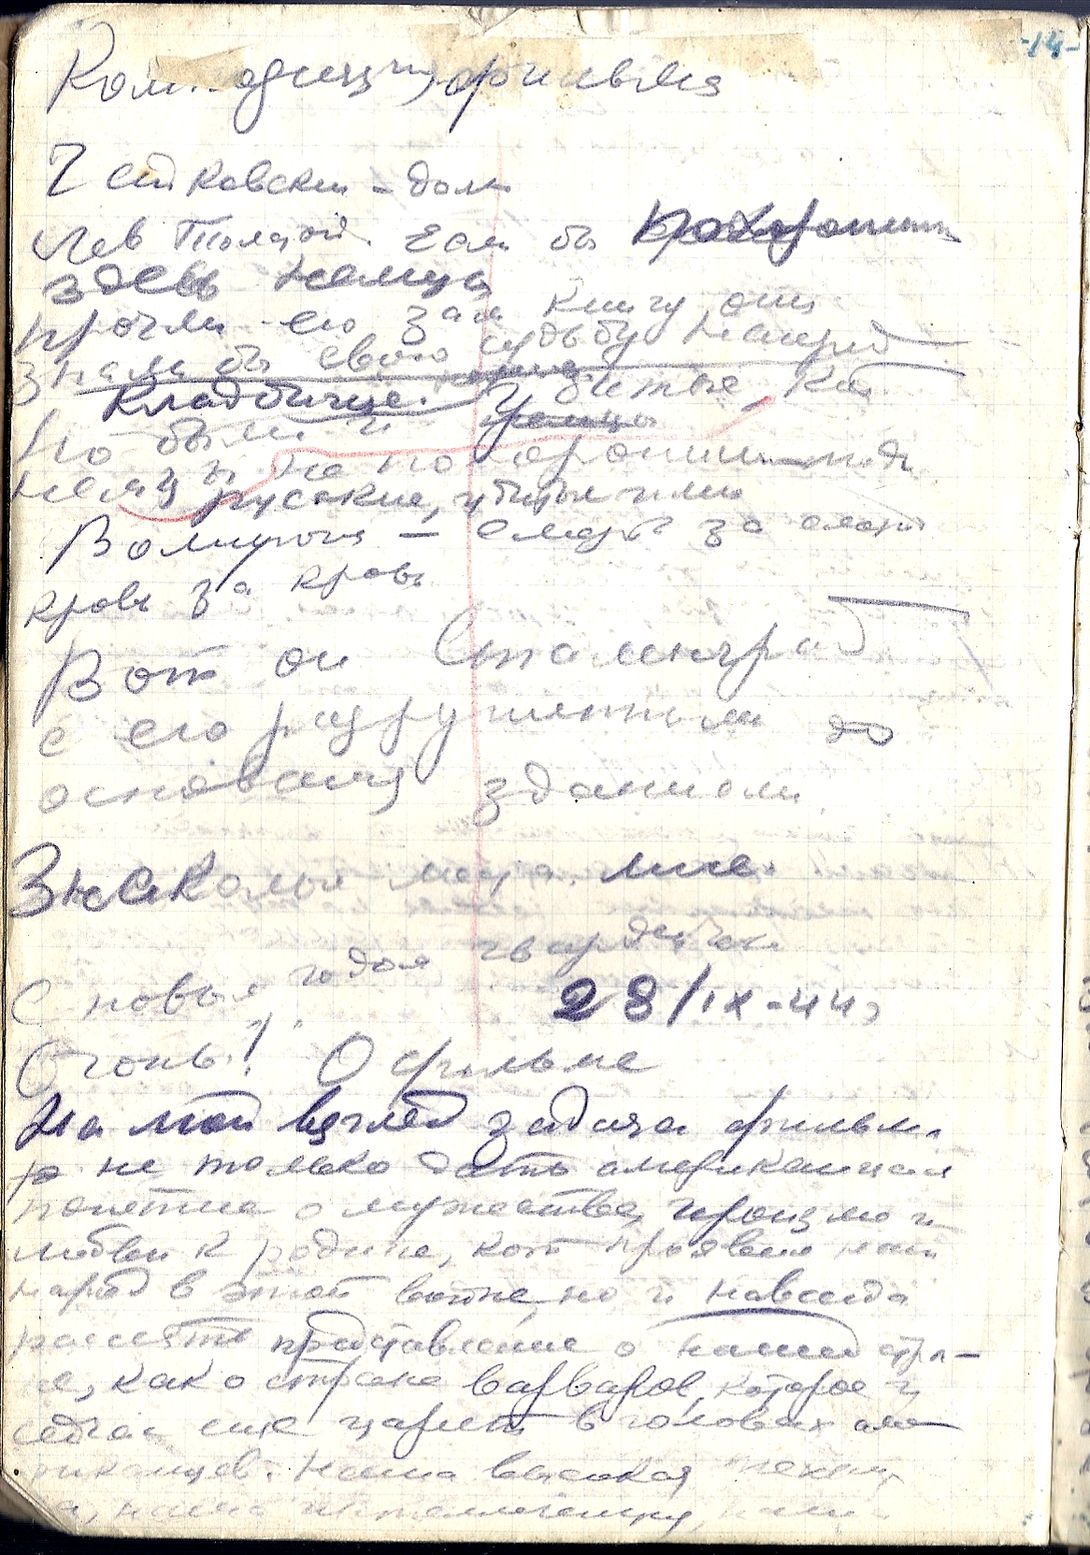 -14-
Композиция фильма
Чайковский - дом
Лев Толстой. Если бы
здесь немцы
прочли его книгу они
знали бы свою судьбу наперед
Кладбище. Убитые, кот
но были и
немцы не похоронили
русские, убитые ими
Волнуюсь - смерть за смерть
кровь за кровь
Вот он Сталинград
с его разрушенными до
основания зданиями
Знакомые места мне
С новым годом гвардейцы
28/IX-44г
Огонь! О фильме
На мой взгляд задача фильма
не только дать американцам
понятие о мужестве, героизме и
любви к родине, кот проявил наш
народ в этой войне, но и навсегда
рассеять представление о нашей стра-
не, как о стране варваров, которое и
сейчас еще царит в головах аме
риканцев. Наша высокая техни
ка, наша интеллигенция, наши